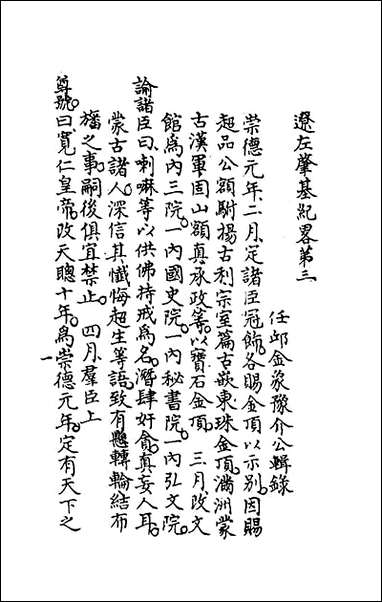 遼左肇基紀畧第三
任邱金象豫介公輯錄
崇德元年二月定諸臣冠飾各賜金頂以示別因賜
超品公額駙揚古利宗室篇古嵌東珠金頂滿洲蒙
古漢軍固山額真承政等以寶石金頂　三月改文
館爲內三院一內國史院一內秘書院一內弘文院
諭諸臣曰喇嘛等以供佛持戒爲名潛肆奸貪真妄人耳
蒙古諸人深信其懺悔超生等語致有懸轉輪結布
旛之事嗣後俱宜禁止　四月羣臣上
尊號曰寬仁皇帝改天聰十年爲崇德元年定有天下之
一